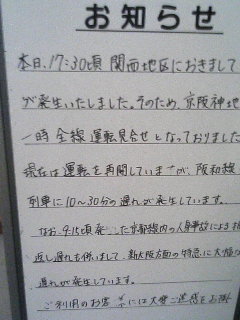 お知らせ
本日、17:30頃 関西地区におきまして
が発生いたしました。そのため、京阪神地
一時 全線 運転見合せ となっておりました
現在は運転を再開していますが、阪和線
列車に10〜30分の遅れが発生しています。
なお、9:15頃発生した京都線内の人身事故による折
返し遅れも併いまして、新大阪方面の特急に大幅な
遅れが発生しています。
ご利用のお客様には大変ご迷惑をお掛